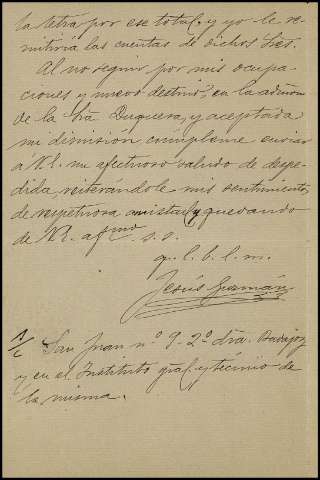 la letra por ese total, y yo le re-
mitiria las cuentas de dichos Sres.
Al no seguir por mis ocupa-
ciones y nuevo destino, en la admon
de la Sra Duquesa, y aceptada
mi dimisión cúmpleme enviar
a V.E. mi afectuoso saludo de despe-
dida, reiterandole mis sentimientos
de respetuosa amistad y quedando
de V.E. afmo. s.s.
q. l. b. l. m.
Jesús Guzmán
S/c San Juan nº 9-2º dra. Badajoz
y en el Instituto gral y técnico de
la misma.